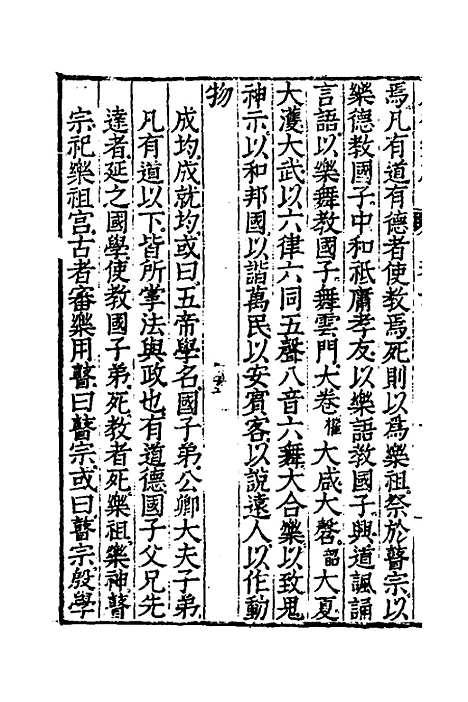 焉凡有道有德者使教焉死則以爲樂祖祭於瞽宗以
樂德教國子中和祗庸孝友以樂語教國子興道諷誦
言語以樂舞教國子舞雲門大卷權大咸大磬韶大夏
大濩大武以六律六同五聲八音六舞大合樂以致鬼
神示以和邦國以諧萬民以安賓客以說遠人以作動
物
成均成就均或曰五帝學名國子弟公卿大夫子弟
凡有道以下皆所掌法與政也有道德國子父兄先
達者延之國學使教國子弟死教者死樂祖樂神瞽
宗祀樂祖宫古者審樂用瞽曰瞽宗或曰瞽宗殷學